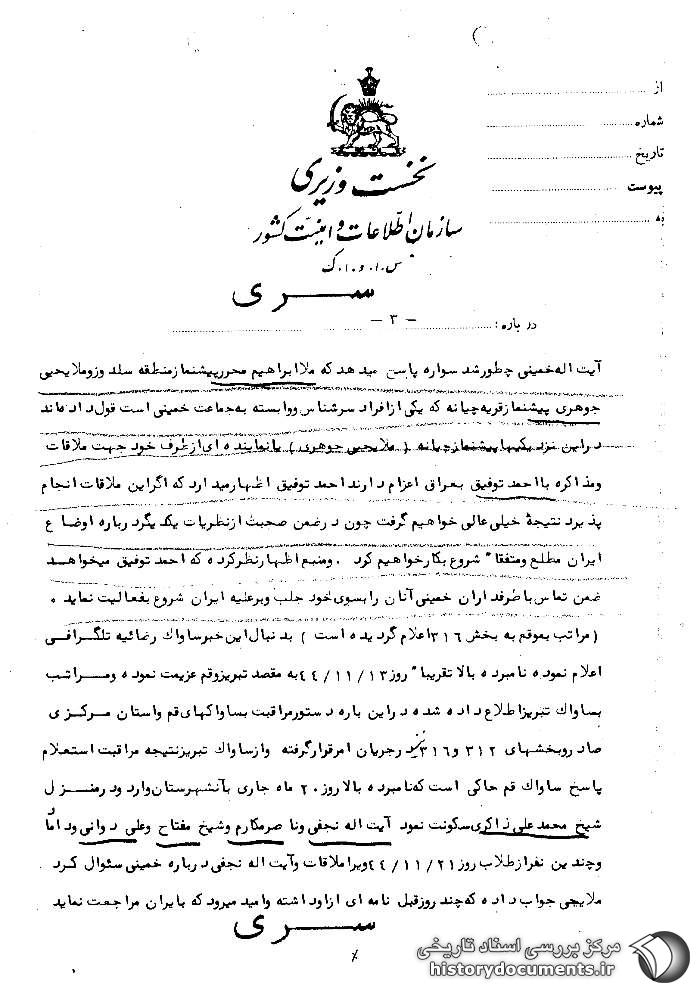 از
شماره
تاریخ
پیوست
به
نخست وزیری
سازمان اطلاعات و امنیت کشور
س.ا.و.ا.ک
سری
درباره : - ۳ -
آیت اله خمینی چطور شد سواره پاسخ میدهد که ملا ابراهیم محرر پیشنماز منطقه سلد وز و ملا یحیی
جوهری پیشنماز قریه چیانه که یکی از افراد سرشناس و وابسته به جماعت خمینی است قول داده اند
در این نزدیکیها پیشنماز چیانه ( ملا یحیی جوهری ) یا نماینده ای از طرف خود جهت ملاقات
و مذاکره با احمد توفیق بعراق اعزام دارند احمد توفیق اظهار میدارد که اگر این ملاقات انجام
پذیرد نتیجهٔ خیلی عالی خواهیم گرفت چون در ضمن صحبت از نظریات یکدیگر درباره اوضاع
ایران مطلع و متفقا" شروع بکار خواهیم کرد . ومنبع اظهار نظر کرده که احمد توفیق میخواهد
ضمن تماس با طرفداران خمینی آنان را بسوی خود جلب و بر علیه ایران شروع بفعالیت نماید .
( مراتب بموقع به بخش ۳۱۶ اعلام گردیده است ) بدنبال این خبر ساواک رضائیه تلگرافی
اعلام نموده نامبرده بالا تقریبا" روز ۴۴/۱۱/۱۳ به مقصد تبریز و قم عزیمت نموده و مراتب
بساواک تبریز اطلاع داده شده در این باره دستور مراقبت بساواکهای قم و استان مرکزی
صادر و بخشهای ۳۱۲ و ۳۱۶ نیز در جریان امر قرار گرفته و از ساواک تبریز نتیجه مراقبت استعلام
پاسخ ساواک قم حاکی است که نامبرده بالا روز ۲۰ ماه جاری بآنشهرستان وارد و در منزل
شیخ محمد علی ذاکری سکونت نمود آیت اله نجفی و ناصر مکارم و شیخ مفتاح و علی دوانی و داماد
و چندین نفر از طلاب روز ۴۴/۱۱/۲۱ ویرا ملاقات و آیت اله نجفی درباره خمینی سئوال کرد
ملا یحیی جواب داده که چند روز قبل نامه ای از او داشته و امید میرود که بایران مراجعت نماید
سری
مرکز بررسی اسناد تاریخی
historydocuments.ir